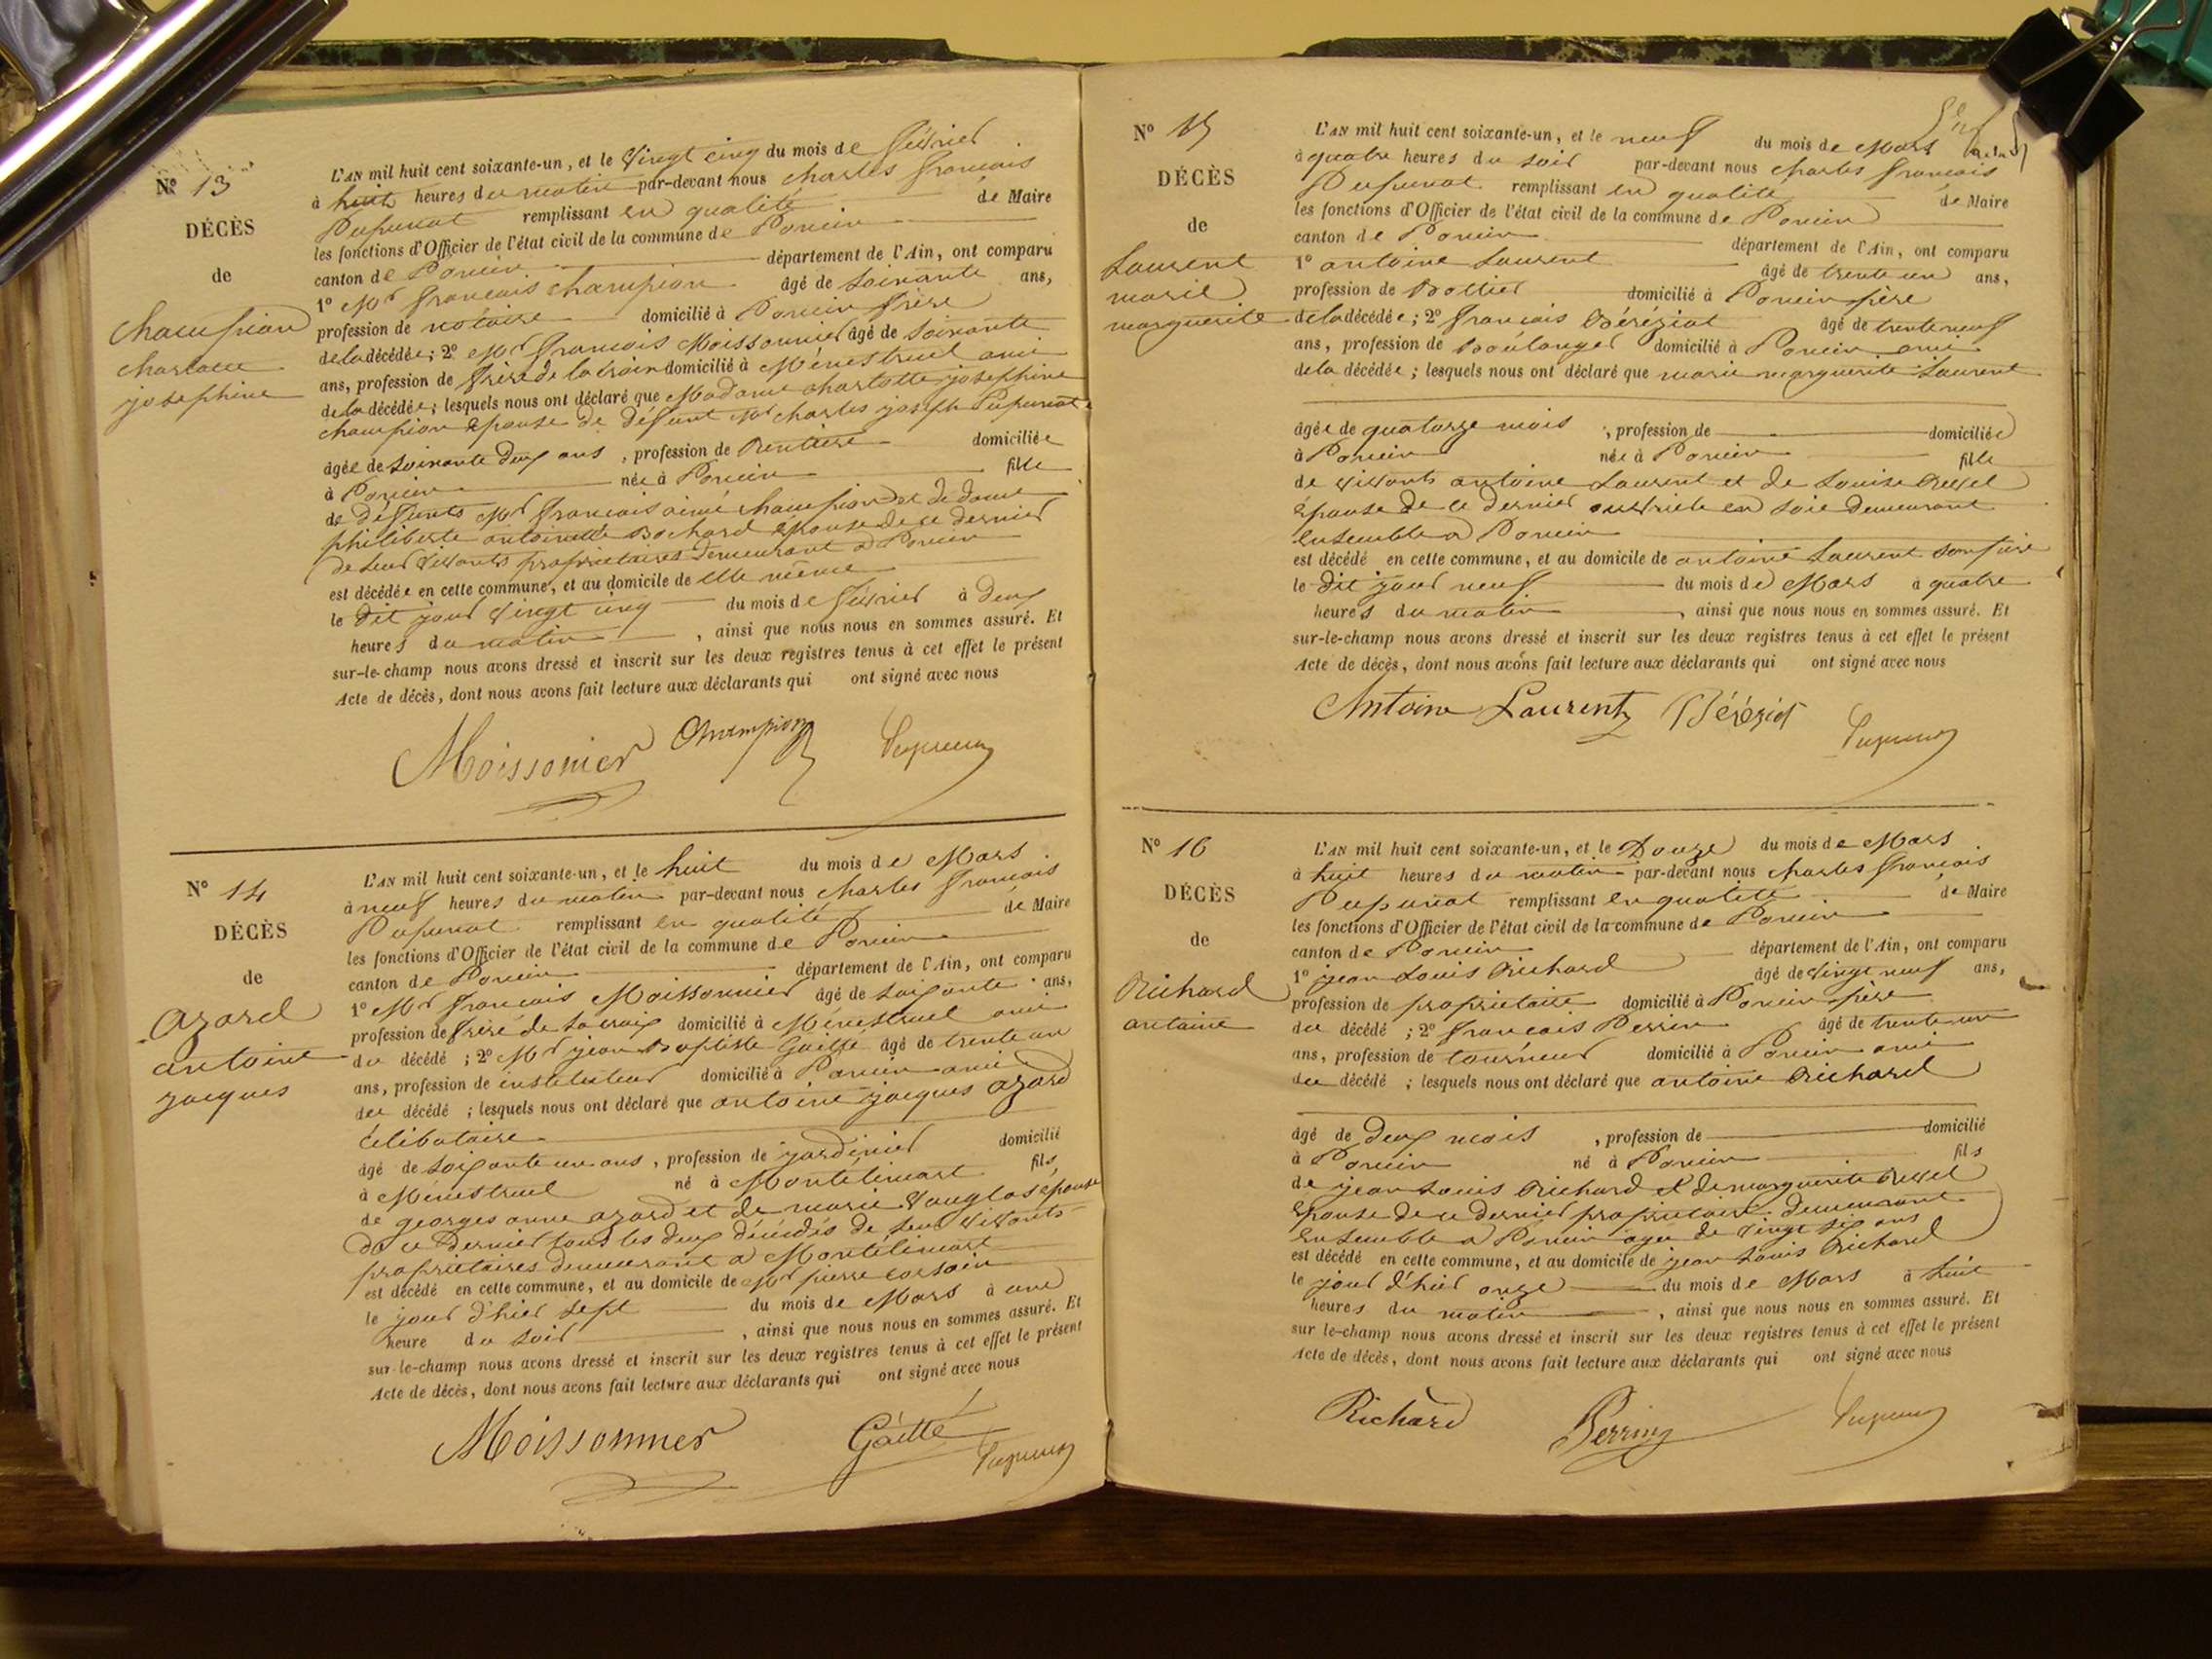 N° 13
DÉCÈS
de
Champion
charlotte
josephine
L'AN mil huit cent soixante-un, et le vingt cinq du mois de février
à huit heures du matin par-devant nous charles françois
Pupunat remplissant en qualité de Maire
les fonctions d'Officier de l'état civil de la commune de Poncin
canton de Poncin département de l'Ain, ont comparu
1° Mr françois champion âgé de soixante ans,
profession de notaire domicilié à Poncin frère
de la décédée; 2° Mr françois Moissonnier âgé de soixante
ans, profession de frère de la croix domicilié à Ménestruel ami
de la décédée; lesquels nous ont déclaré que Madame charlotte josephine
champion épouse de défunt Mr charles joseph Pupunat
âgée de soixante deux ans, profession de Rentière domiciliée
à Poncin née à Poncin fille
de défunts Mr françois aimé champion et de dame
philiberte antoinette Bochard épouse de ce dernier
de leur vivants propriétaires demeurant à Poncin
est décédée en cette commune, et au domicile de elle même
le dit jour vingt cinq du mois de février à deux
heures du matin, ainsi que nous nous en sommes assuré. Et
sur-le-champ nous avons dressé et inscrit sur les deux registres tenus à cet effet le présent
Acte de décès, dont nous avons fait lecture aux déclarants qui ont signé avec nous
Moissonier Champion Pupunat
N° 14
DÉCÈS
de
Azard
antoine
jacques
L'AN mil huit cent soixante-un, et le huit du mois de Mars
à neuf heures du matin par-devant nous charles françois
Pupunat remplissant en qualité de Maire
les fonctions d'Officier de l'état civil de la commune de Poncin
canton de Poncin département de l'Ain, ont comparu
1° Mr françois Moissonnier âgé de soixante ans,
profession de frère de la croix domicilié à Ménestruel ami
du décédé; 2° Mr jean Baptiste Gaitte âgé de trente un
ans, profession de instituteur domicilié à Poncin ami
du décédé; lesquels nous ont déclaré que antoine jacques azard
célibataire
âgé de soixante un ans, profession de jardinier domicilié
à Ménestruel né à Montélimart fils
de georges anne azard et de marie épouse
de ce dernier tous les deux décédés de leur vivants
propriétaires demeurant à Montélimart
est décédé en cette commune, et au domicile de Mr pierre
le jour d'hier sept du mois de Mars à une
heure du soir, ainsi que nous nous en sommes assuré. Et
sur-le-champ nous avons dressé et inscrit sur les deux registres tenus à cet effet le présent
Acte de décès, dont nous avons fait lecture aux déclarants qui ont signé avec nous
Moissonnier Gaitte Pupunat
N° 15
DÉCÈS
de
Laurent
marie
marguerite
L'AN mil huit cent soixante-un, et le neuf du mois de Mars
à quatre heures du soir par-devant nous charles françois
Pupunat remplissant en qualité de Maire
les fonctions d'Officier de l'état civil de la commune de Poncin
canton de Poncin département de l'Ain, ont comparu
1° antoine Laurent âgé de trente un ans,
profession de Bottier domicilié à Poncin père
de la décédée; 2° françois Béréziat âgé de trente neuf
ans, profession de Boulanger domicilié à Poncin ami
de la décédée; lesquels nous ont déclaré que marie marguerite Laurent
âgée de quatorze mois, profession de domiciliée
à Poncin née à Poncin fille
de vivants antoine Laurent et de Louise Revel
épouse de ce dernier ouvrière en soie demeurant
ensemble à Poncin
est décédé en cette commune, et au domicile de antoine Laurent son père
le dit jour neuf du mois de Mars à quatre
heures du matin, ainsi que nous nous en sommes assuré. Et
sur-le-champ nous avons dressé et inscrit sur les deux registres tenus à cet effet le présent
Acte de décès, dont nous avons fait lecture aux déclarants qui ont signé avec nous
Antoine Laurent Béréziat Pupunat
N° 16
DÉCÈS
de
Richard
antoine
L'AN mil huit cent soixante-un, et le Douze du mois de Mars
à huit heures du matin par-devant nous charles françois
Pupunat remplissant en qualité de Maire
les fonctions d'Officier de l'état civil de la commune de Poncin
canton de Poncin département de l'Ain, ont comparu
1° jean Louis Richard âgé de vingt neuf ans,
profession de propriétaire domicilié à Poncin père
du décédé; 2° françois Perrin âgé de trente un
ans, profession de tourneur domicilié à Poncin ami
du décédé; lesquels nous ont déclaré que antoine Richard
âgé de deux mois, profession de domicilié
à Poncin né à Poncin fils
de jean Louis Richard et de marguerite Revel
épouse de ce dernier propriétaire demeurant
ensemble à Poncin agée de vingt six ans
est décédé en cette commune, et au domicile de jean Louis Richard
le jour d'hier onze du mois de Mars à huit
heures du matin, ainsi que nous nous en sommes assuré. Et
sur le-champ nous avons dressé et inscrit sur les deux registres tenus à cet effet le présent
Acte de décès, dont nous avons fait lecture aux déclarants qui ont signé avec nous
Richard Perrin Pupunat